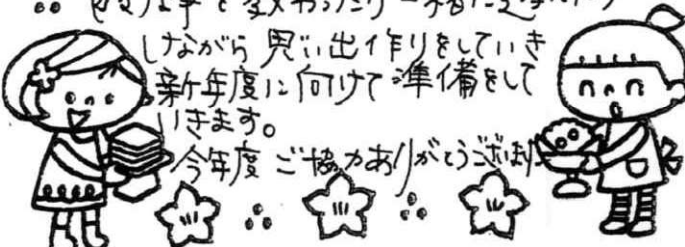 事を教わったり一緒に
しながら 思い出作りをしていき
新年度に向けて準備をして
いきます。
今年度 ご協力ありがとうございま